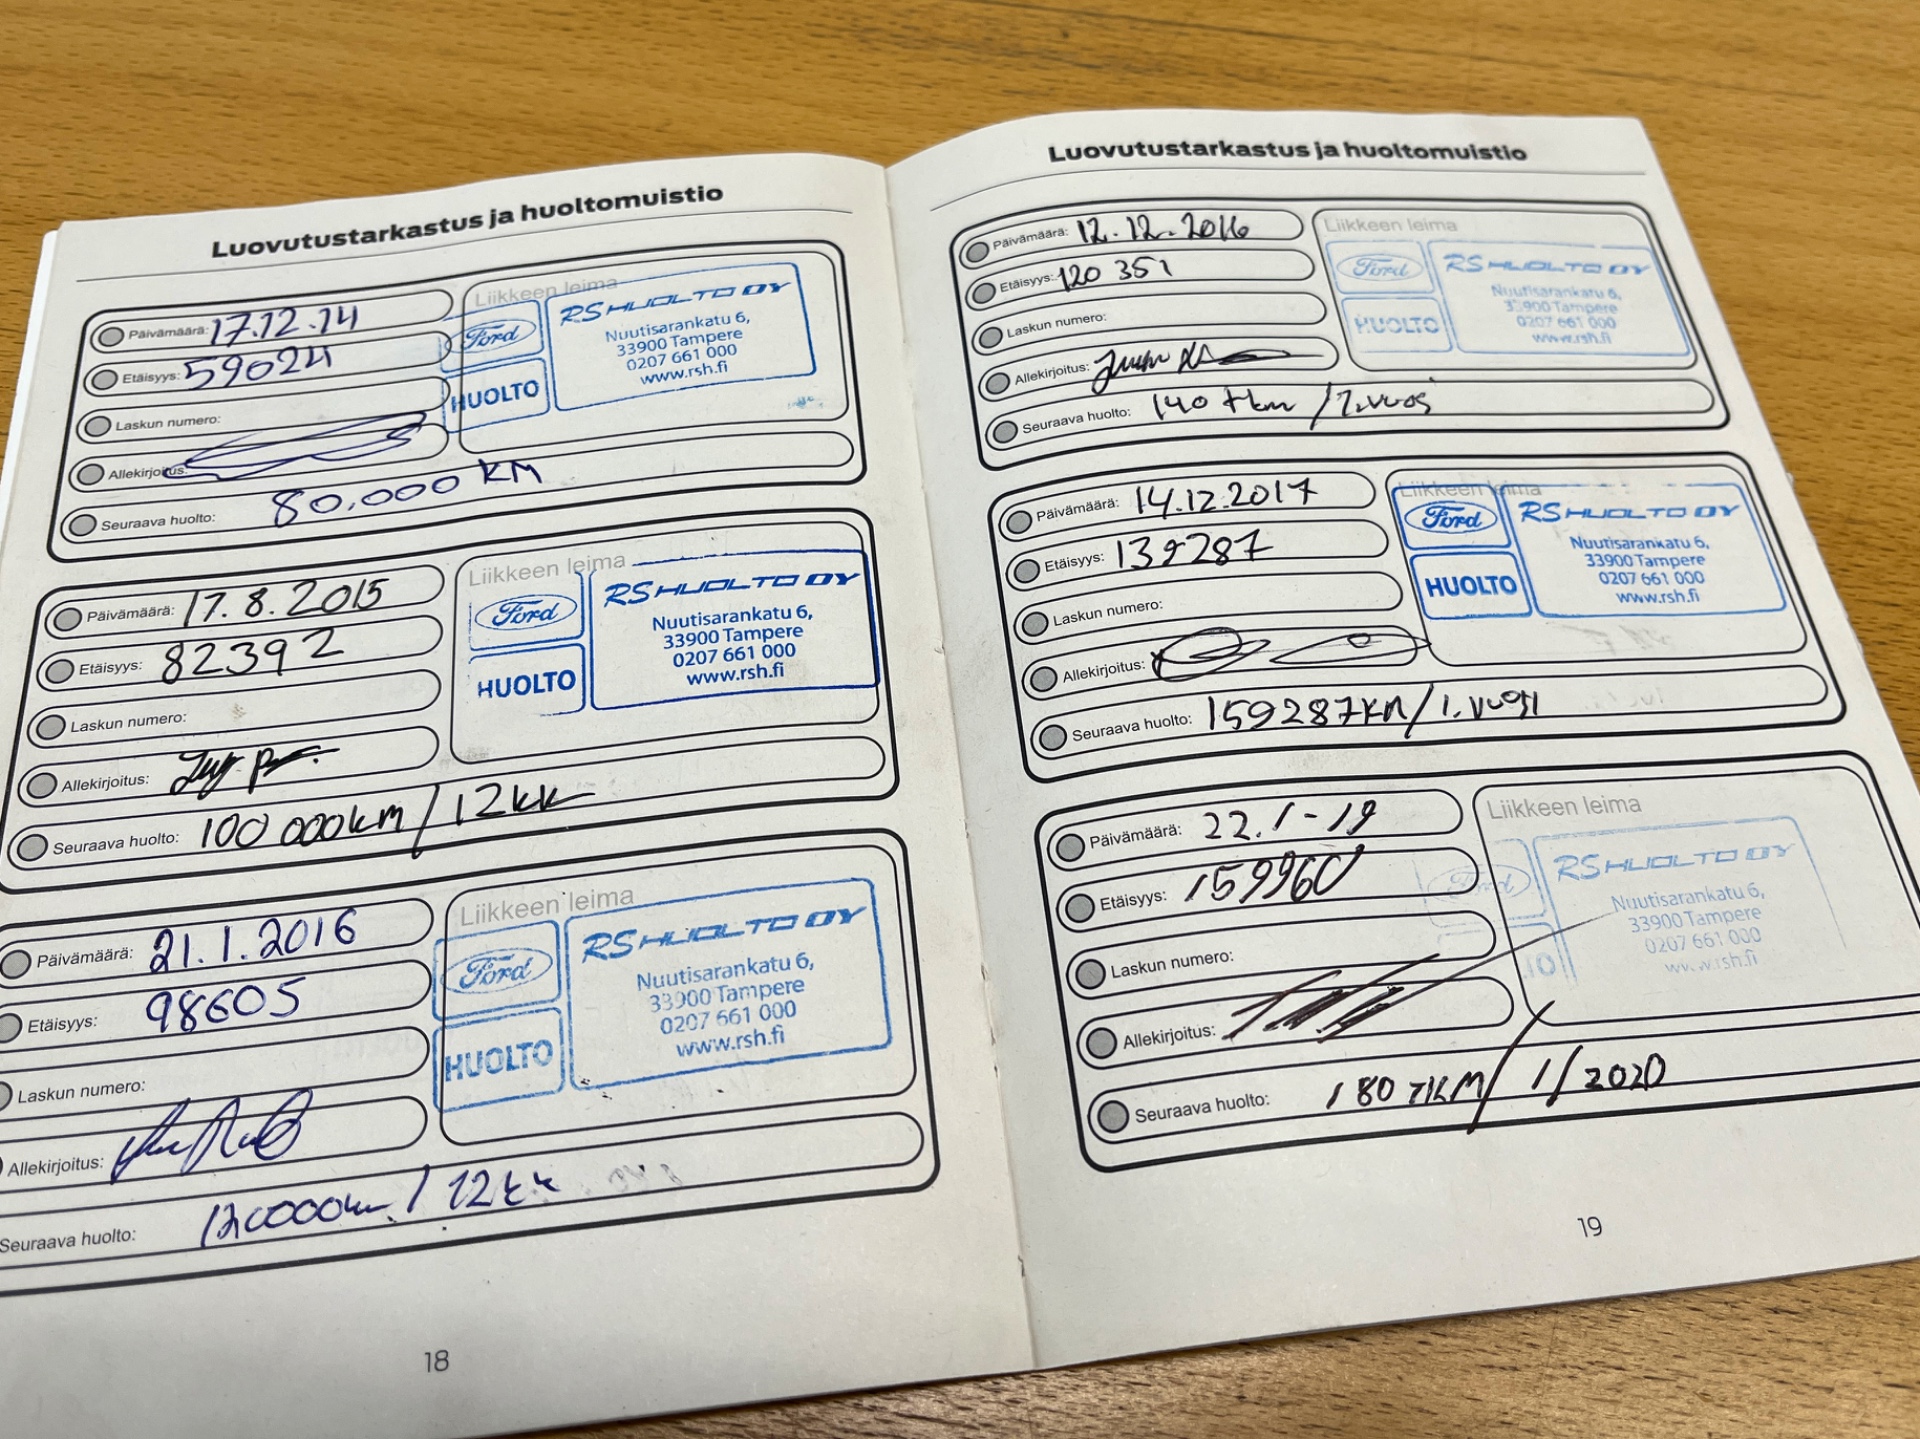 Luovutustarkastus ja huoltomuistio
Päivämäärä: 17.12.14
Etäisyys: 59024
Laskun numero:
Allekirjoitus:
Seuraava huolto: 80.000 KM
Liikkeen leima
Ford
HUOLTO
RS HUOLTO OY
Nuutisarankatu 6,
33900 Tampere
0207 661 000
www.rsh.fi
Päivämäärä: 17.8.2015
Etäisyys: 82392
Laskun numero:
Allekirjoitus:
Seuraava huolto: 100 000km / 12kk
Liikkeen leima
Ford
HUOLTO
RS HUOLTO OY
Nuutisarankatu 6,
33900 Tampere
0207 661 000
www.rsh.fi
Päivämäärä: 21.1.2016
Etäisyys: 98605
Laskun numero:
Allekirjoitus:
Seuraava huolto: 120000km / 12kk
Liikkeen leima
Ford
HUOLTO
RS HUOLTO OY
Nuutisarankatu 6,
33900 Tampere
0207 661 000
www.rsh.fi
18
Luovutustarkastus ja huoltomuistio
Päivämäärä: 12.12.2016
Etäisyys: 120 351
Laskun numero:
Allekirjoitus:
Seuraava huolto: 140 tkm / 1.vuosi
Liikkeen leima
Ford
HUOLTO
RS HUOLTO OY
Nuutisarankatu 6,
33900 Tampere
0207 661 000
www.rsh.fi
Päivämäärä: 14.12.2017
Etäisyys: 139287
Laskun numero:
Allekirjoitus:
Seuraava huolto: 159287KM / 1.vuosi
Liikkeen leima
Ford
HUOLTO
RS HUOLTO OY
Nuutisarankatu 6,
33900 Tampere
0207 661 000
www.rsh.fi
Päivämäärä: 22.1-19
Etäisyys: 159960
Laskun numero:
Allekirjoitus:
Seuraava huolto: 180 TKM / 1/2020
Liikkeen leima
Ford
RS HUOLTO OY
Nuutisarankatu 6,
33900 Tampere
0207 661 000
www.rsh.fi
19